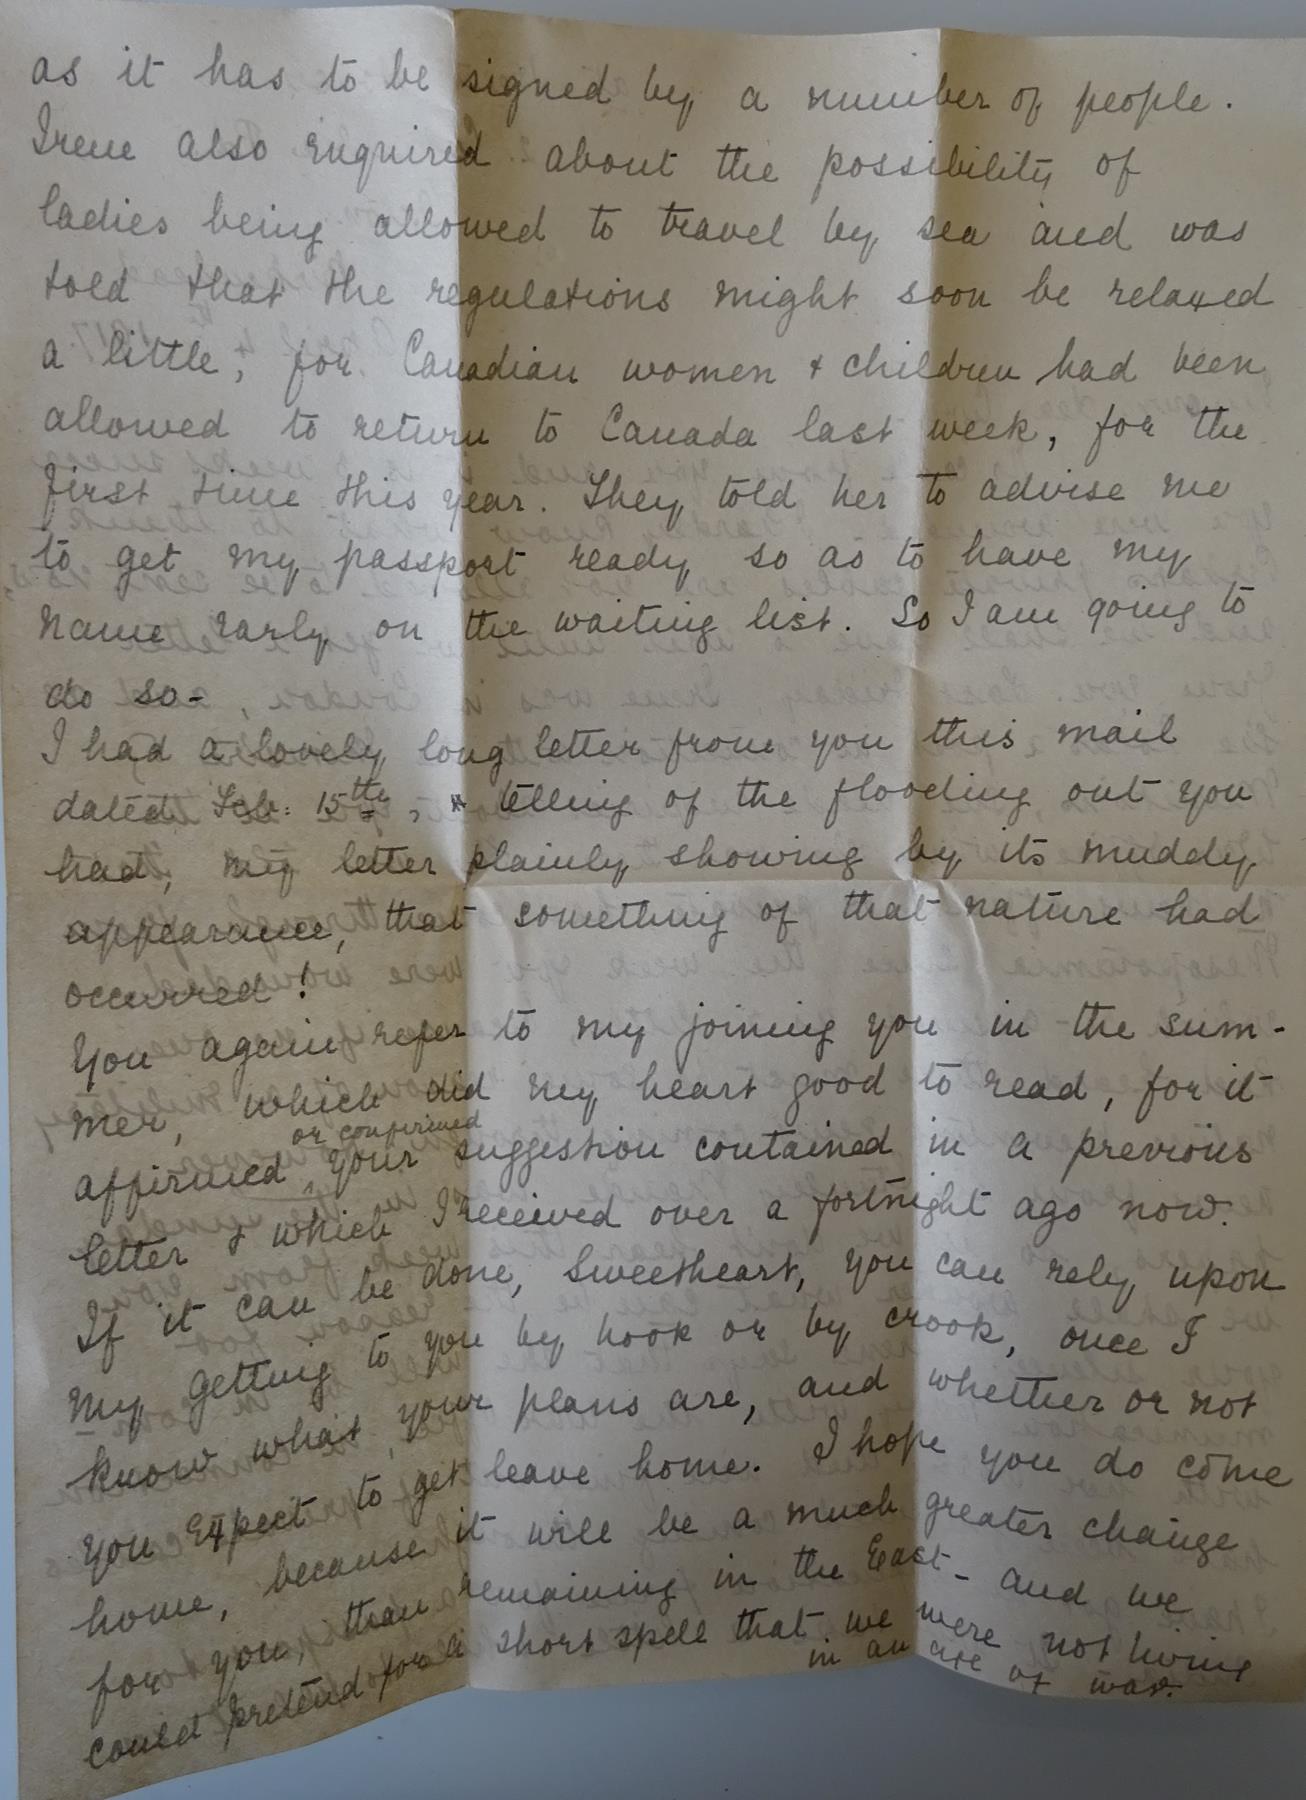 as it has to be signed by a number of people.
Irene also enquired about the possibility of
ladies being allowed to travel by sea and was
told that the regulations might soon be relaxed
a little, for Canadian women & children had been
allowed to return to Canada last week, for the
first time this year. They told her to advise me
to get my passport ready so as to have my
name early on the waiting list. So I am going to
do so-
I had a lovely long letter from you this mail
dated Feb: 15th, telling of the flooding out you
had, my letter plainly showing by its muddy
appearance, that something of that nature had
occurred!
You again refer to my joining you in the sum-
mer, which did my heart good to read, for it
or confirmed
affirmed your suggestion contained in a previous
letter & which I received over a fortnight ago now.
If it can be done, sweetheart, you can rely upon
my getting to you by hook or by crook, once I
know what your plans are, and whether or not
you expect to get leave home. I hope you do come
home, because it will be a much greater change
for you, than remaining in the East- and we
could pretend for a short spell that we were not living
in an age of war.